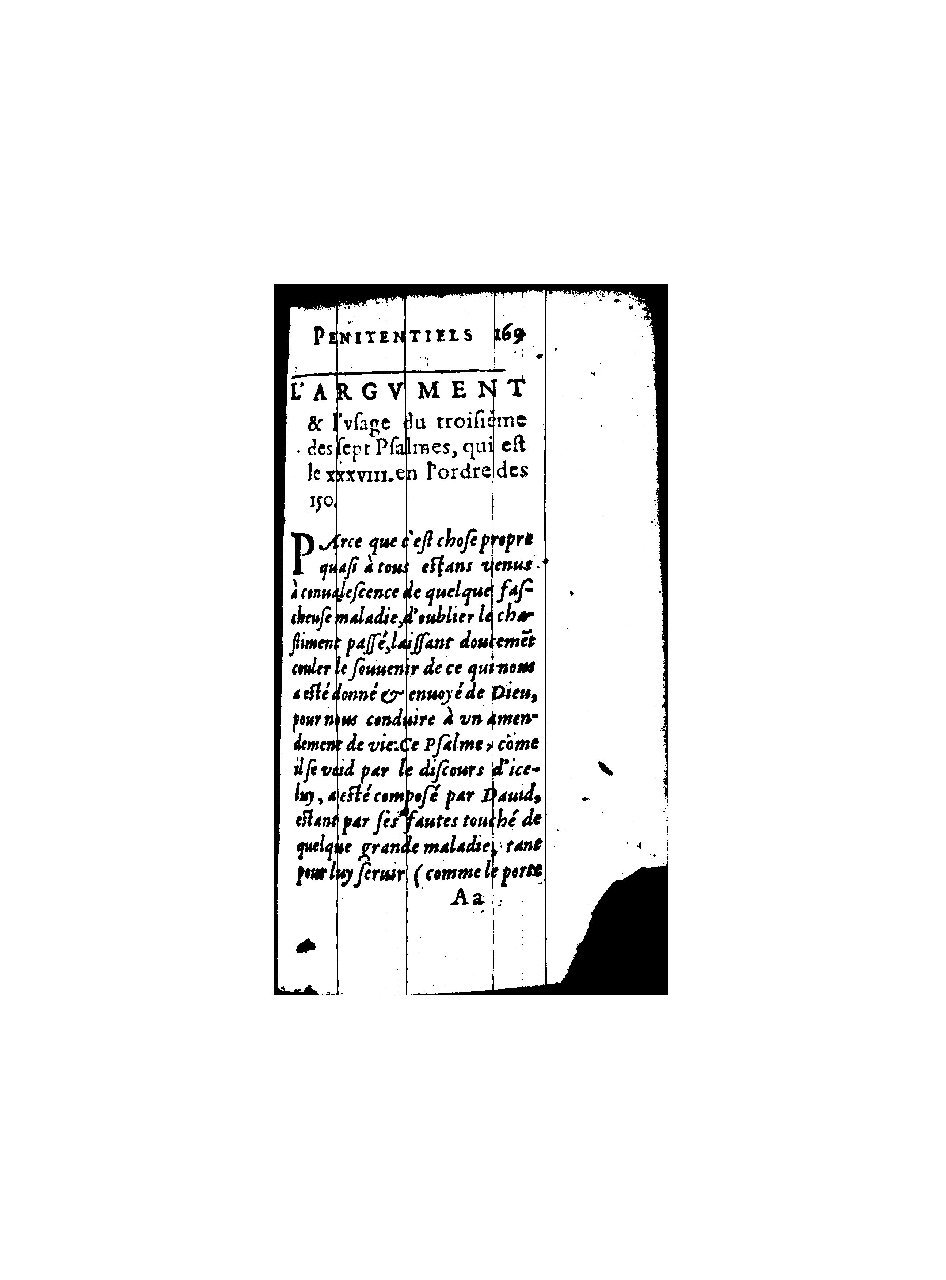 PENITENTIELS 169
L'ARGVMENT
& l'vſage du troiſiéme
des ſept Pſalmes, qui eſt
le XXXVIII. en l'ordre des
150.
PArce que c'eſt choſe propre
quaſi à tous eſtans venus
à conualeſcence de quelque faſ-
cheuſe maladie, d'oublier le cha-
ſtiment paſſé, laiſſant doucemẽt
couler le ſouuenir de ce qui nous
a eſté donné & enuoyé de Dieu,
pour nous conduire à vn amen-
dement de vie: Ce Pſalme, cõme
il ſe void par le diſcours d'ice-
luy, a eſté compoſé par Dauid,
eſtant par ſes fautes touché de
quelque grande maladie, tant
pour luy ſeruir (comme le porte
Aa